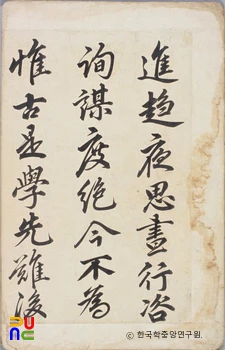 進趍夜思晝行咨
詢謀度絶今不為
惟古是學先難後
PUNC
© 한국학중앙연구원.